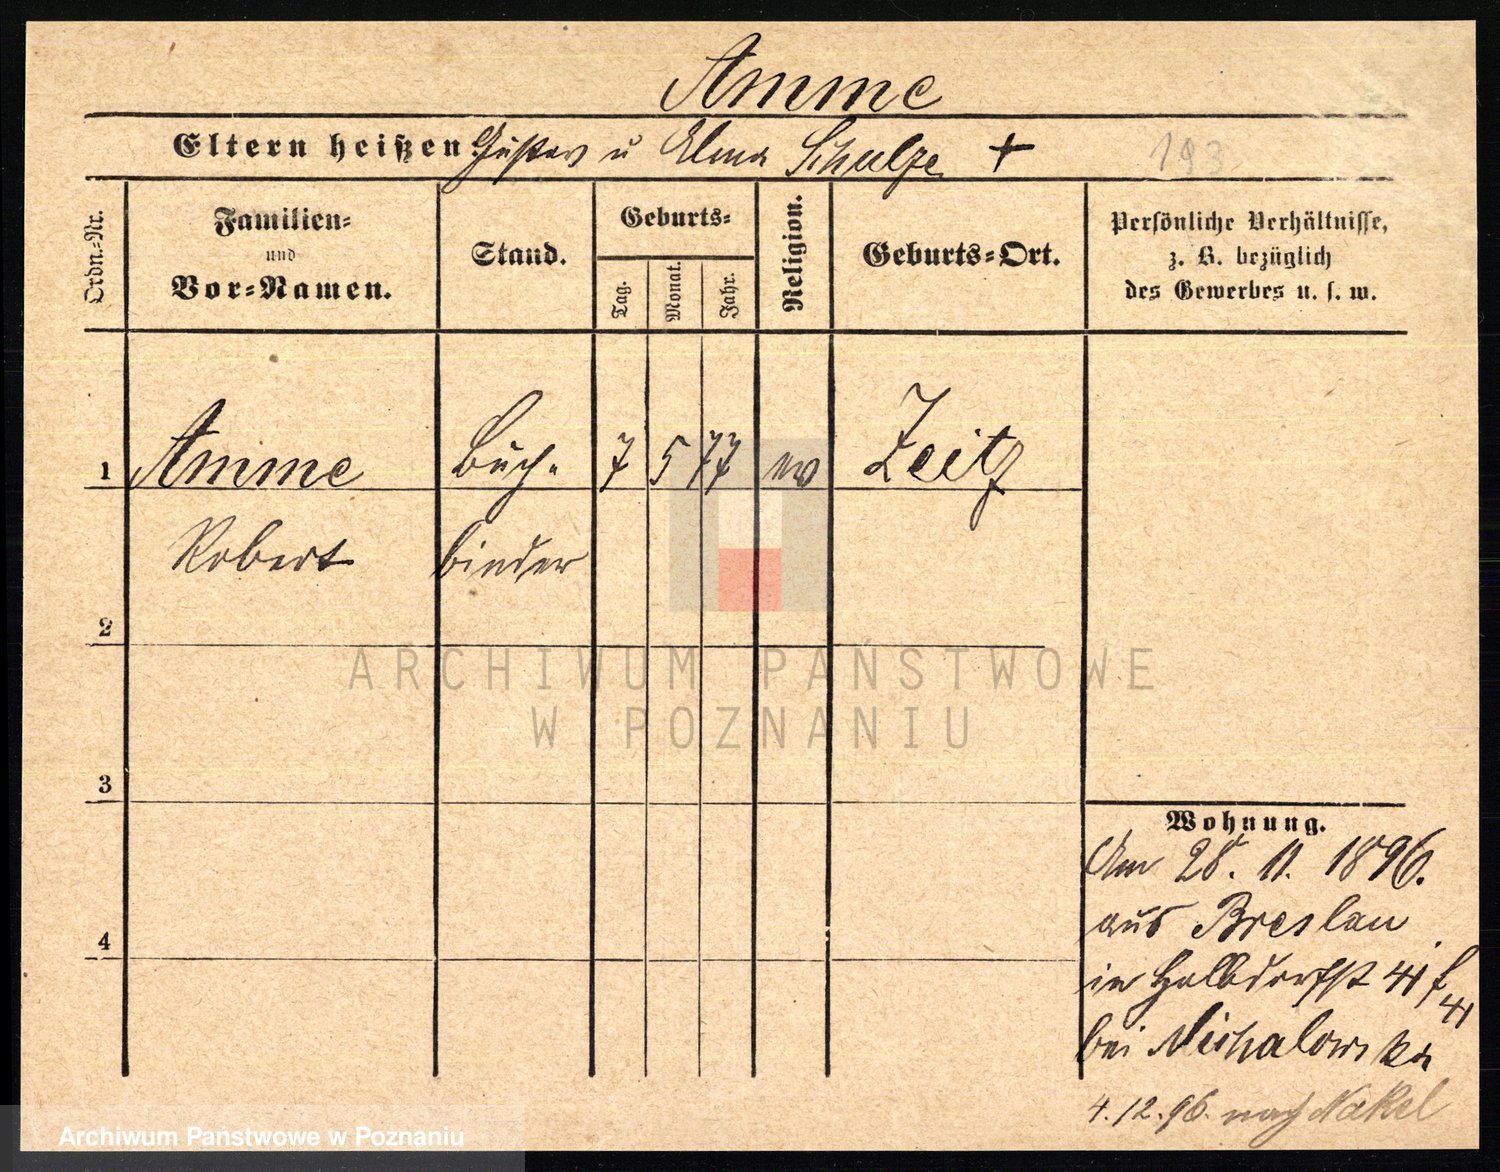 Amme
Eltern heißen Gustav u Alma Schulze +
193
Ordn.-Nr.
Familien-
und
Vor-Namen.
Stand.
Geburts-
Tag.
Monat.
Jahr.
Religion.
Geburts-Ort.
Persönliche Verhältnisse,
z. B. bezüglich
des Gewerbes u. s. w.
1 Amme Buch- 7 5 77 ev Zeitz
Robert binder
2
3
4
Wohnung.
Am 28. 11. 1896.
aus Breslau
in Halbdorfst 41
41
bei Michalowska
4.12.96. nach Nakel
ARCHIWUM PAŃSTWOWE
W POZNANIU
Archiwum Państwowe w Poznaniu